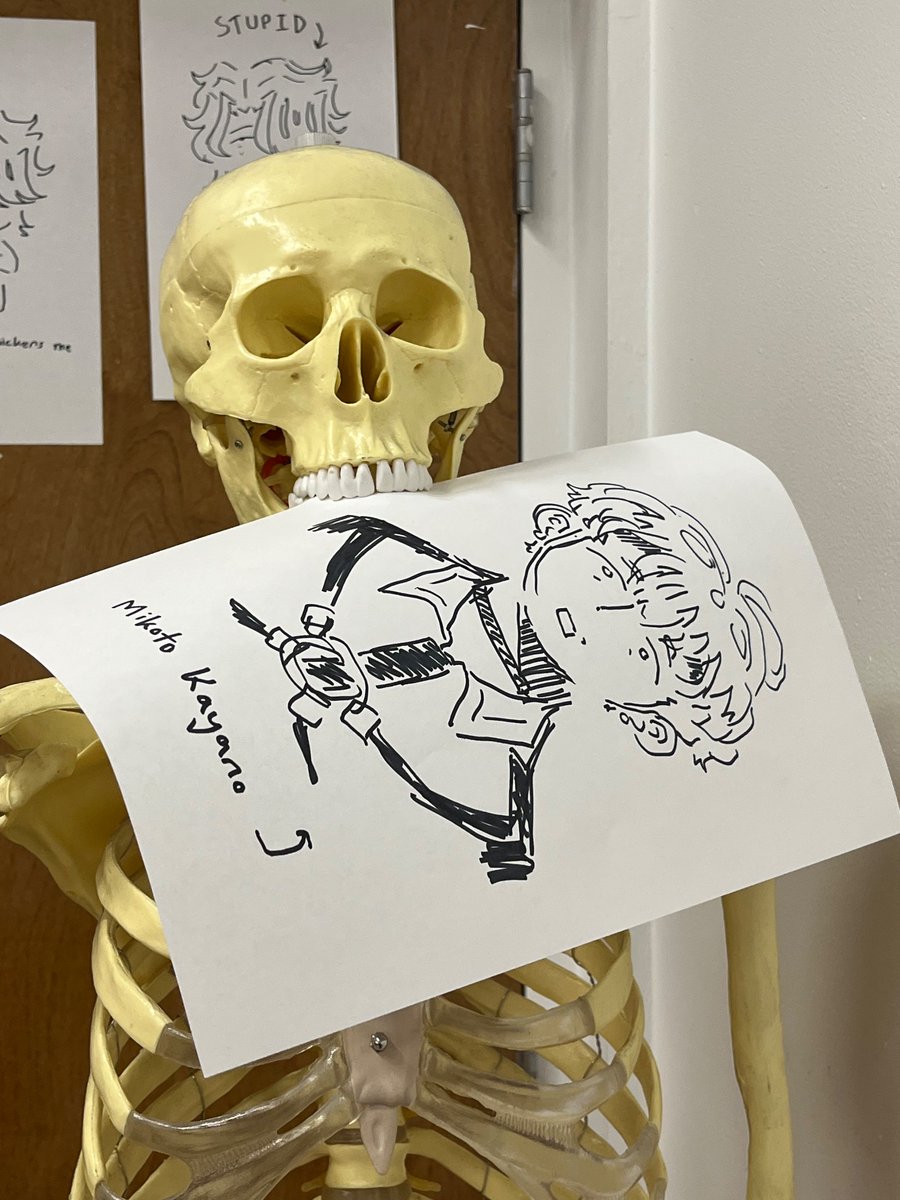 STUPID
me
Mikoto Kayano